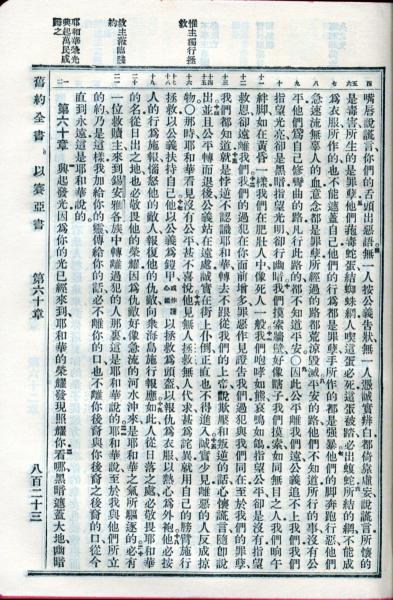 惟主獨行拯救
救主涖臨錫約
耶和華發光興起萬民咸歸之
嘴唇說謊言、你們的舌頭出惡語、無一人按公義告狀、無一人憑誠實辨白、都倚靠虛妄、說謊言、所懷的
是毒害、所生的是罪孽、他們菢毒蛇蛋、結蜘蛛網、人喫這蛋必死、這蛋被踏、必出蝮蛇、所結的網、不能成
為衣服、所作的也不能遮蓋自己、他們的行為都是罪孽、手所作的都是強暴、他們的脚奔跑行惡、他們
急速流無辜人的血、意念都是罪孽、所經過的路都荒涼毀滅、平安的路他們不知道、所行的事沒有公
平、他們為自己修彎曲的路、凡行此路的都不知道平安○因此公平離我們遠、公義追不上我們、我們
指望光亮、卻是黑暗、指望光明、卻行幽暗、我們摸索牆壁、好像瞎子、我們摸索、如同無目之人、我們晌午
絆脚、如在黃昏一樣、我們在肥壯人中、像死人一般、我們咆哮如熊、哀鳴如鴿、指望公平、卻是沒有、指望
救恩、卻遠離我們、我們的過犯在你面前增多、罪惡作見證告我們、過犯與我們同在、至於我們的罪孽
我們都知道、就是悖逆、不認識耶和華、轉去不跟從我們的上帝、說欺壓和叛逆的話、心懷謊言、隨即說
出、並且公平轉而退後、公義站在遠處、誠實在街上仆倒、正直也不得進入、誠實少見、離惡的人反成掠
物○那時耶和華看見沒有公平、甚不喜悅、他見無人拯救、無人代求、甚為詫異、就用自己的膀臂施行
拯救、以公義扶持自己、他以公義為鎧甲或作護心鏡以拯救為頭盔、以報仇為衣服、以熱心為外袍、他必按
人的行為施報、惱怒他的敵人、報復他的仇敵、向衆海島施行報應、如此人從日落之處必敬畏耶和華
的名、從日出之地也必敬畏他的榮耀、因為仇敵好像急流的河水沖來、是耶和華之氣所驅逐的、必有
一位救贖主、來到錫安雅各族中轉離過犯的人那裏、這是耶和華說的、耶和華說、至於我與他們所立
的約乃是這樣、我加給你的靈、傳給你的話、必不離你的口、也不離你後裔與你後裔之後裔的口、從今
直到永遠、這是耶和華說的
第六十章 興起發光、因為你的光已經來到、耶和華的榮耀發現照耀你、看哪、黑暗遮蓋大地、幽暗
舊約全書 以賽亞書 第六十章 八百二十三